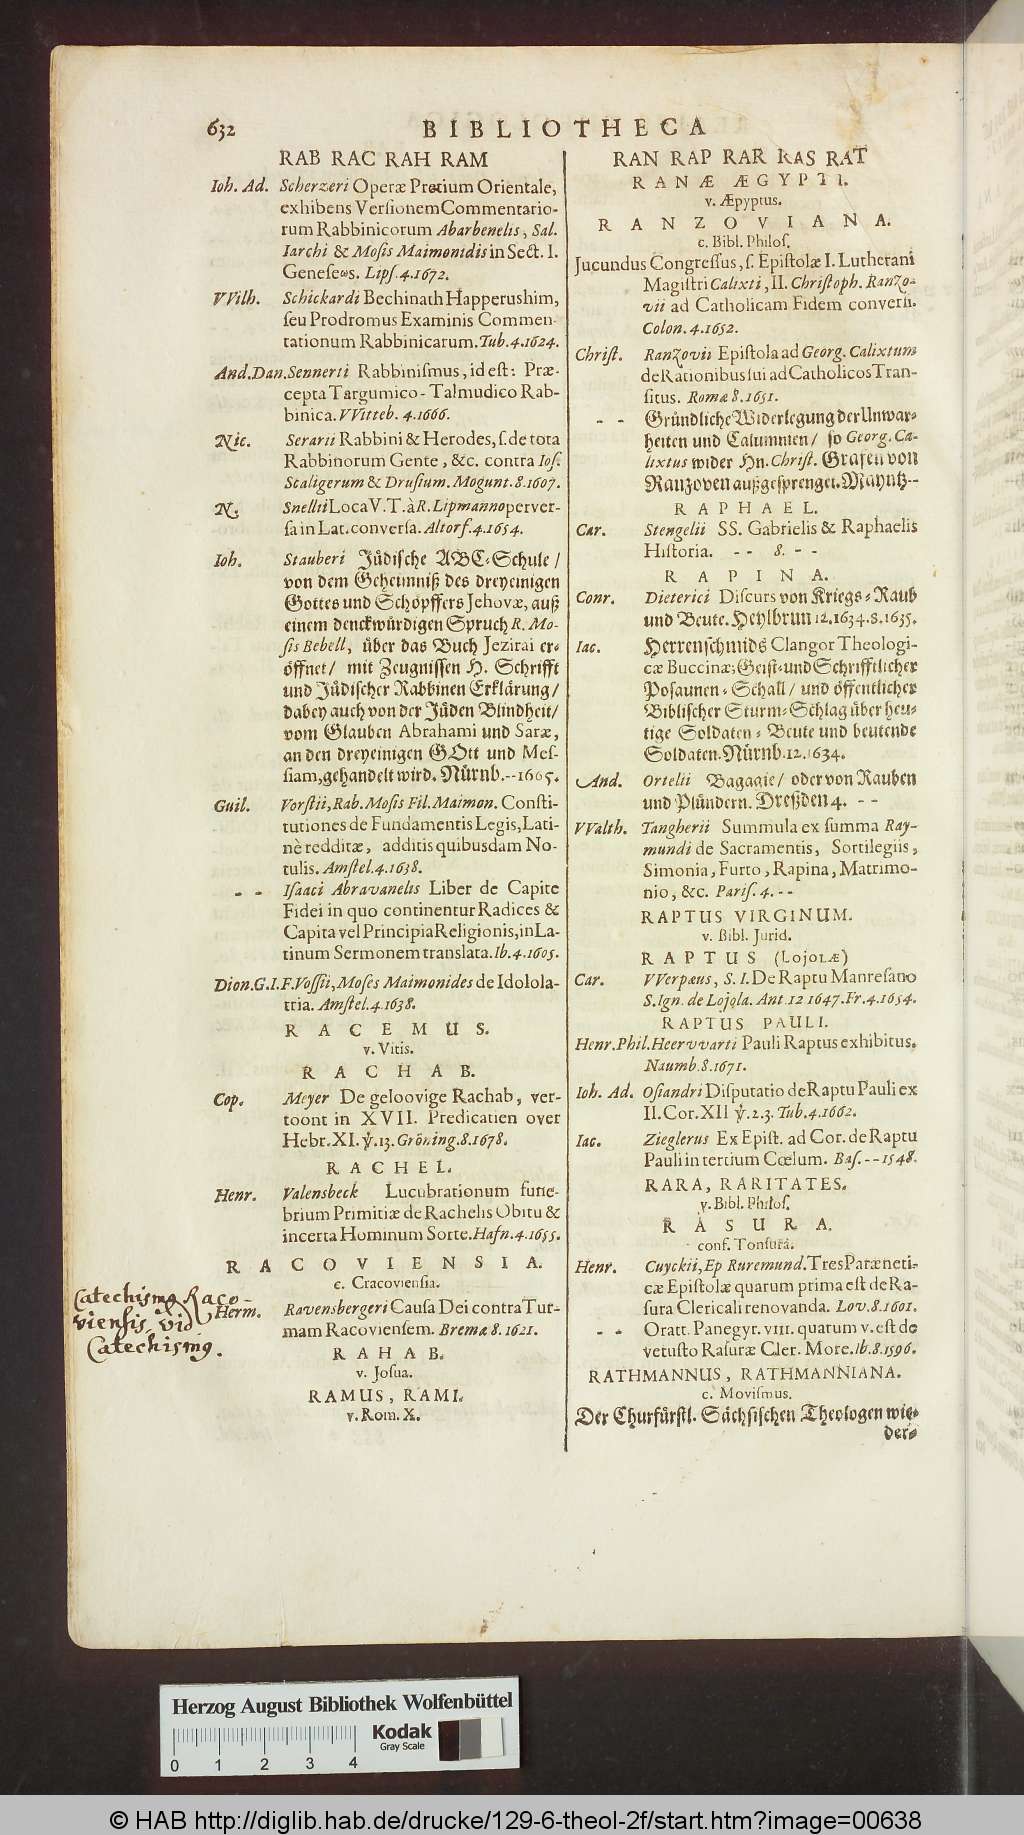 632
BIBLIOTHECA
RAB RAC RAH RAM
Ioh. Ad. Scherzeri Operæ Pretium Orientale,
exhibens Verſionem Commentario-
rum Rabbinicorum Abarbenelis, Sal.
Iarchi & Moſis Maimonidis in Sect. I.
Geneſeωs. Lipſ. 4. 1672.
VVilh. Schickardi Bechinath Happerushim,
ſeu Prodromus Examinis Commen-
tationum Rabbinicarum. Tub. 4. 1624.
And. Dan. Sennerti Rabbiniſmus, id eſt: Præ-
cepta Targumico-Talmudico Rab-
binica. VVitteb. 4. 1666.
Nic. Serarii Rabbini & Herodes, ſ. de tota
Rabbinorum Gente, &c. contra Ioſ.
Scaligerum & Druſium. Mogunt. 8. 1607.
N. Snellii Loca V. T. à R. Lipmanno perver-
ſa in Lat. converſa. Altorf. 4. 1654.
Ioh. Stauberi Jüdiſche ABC-Schule /
von dem Geheimniß des dreyeinigen
Gottes und Schöpffers Jehovæ, auß
einem denckwürdigen Spruch R. Mo-
ſis Bebell, über das Buch Jezirai er-
öffnet / mit Zeugniſſen H. Schrifft
und Jüdiſcher Rabbinen Erklärung /
dabey auch von der Jüden Blindheit /
vom Glauben Abrahami und Saræ,
an den dreyeinigen GOtt und Meſ-
ſiam, gehandelt wird. Nürnb. -- 1605.
Guil. Vorſtii, Rab. Moſis Fil. Maimon. Conſti-
tutiones de Fundamentis Legis, Lati-
nè redditæ, additis quibusdam No-
tulis. Amſtel. 4. 1638.
- - Iſaaci Abravanelis Liber de Capite
Fidei in quo continentur Radices &
Capita vel Principia Religionis, in La-
tinum Sermonem translata. Ib. 4. 1605.
Dion. G. I. F. Voſſii, Moſes Maimonides de Idolola-
tria. Amſtel. 4. 1638.
RACEMUS.
v. Vitis.
RACHAB.
Cop. Meyer De geloovige Rachab, ver-
toont in XVII. Predicatien over
Hebr. XI. ℣. 13. Gröning. 8. 1678.
RACHEL.
Henr. Valensbeck Lucubrationum fune-
brium Primitiæ de Rachelis Obitu &
incerta Hominum Sorte. Hafn. 4. 1655.
RACOVIENSIA.
c. Cracovienſia.
Catechismq Raco-
viensis vid
Catechismq.
Herm. Ravensbergeri Cauſa Dei contra Tur-
mam Racovienſem. Bremæ 8. 1621.
RAHAB.
v. Joſua.
RAMUS, RAMI.
v. Rom. X.
RAN RAP RAR RAS RAT
RANÆ ÆGYPTI.
v. Æpyptus.
RANZOVIANA.
c. Bibl. Philoſ.
Jucundus Congreſſus, ſ. Epiſtolæ I. Lutherani
Magiſtri Calixti, II. Chriſtoph. Ranzo-
vii ad Catholicam Fidem converſi.
Colon. 4. 1652.
Chriſt. Ranzovii Epiſtola ad Georg. Calixtum
de Rationibus ſui ad Catholicos Tran-
ſitus. Romæ 8. 1651.
- - Gründliche Widerlegung der Unwar-
heiten und Calumnien / ſo Georg. Ca-
lixtus wider Hn. Chriſt. Grafen von
Ranzoven außgeſprenget. Mäyntz--
RAPHAEL.
Car. Stengelii SS. Gabrielis & Raphaelis
Hiſtoria. -- 8. --
RAPINA.
Conr. Dieterici Diſcurs von Kriegs-Raub
und Beute. Heylbrun 12. 1634. 8. 1635.
Iac. Herrenſchmids Clangor Theologi-
cæ Buccinæ; Geiſt- und Schrifftlicher
Poſaunen-Schall / und öffentlicher
Bibliſcher Sturm-Schlag über heu-
tige Soldaten-Beute und beutende
Soldaten. Nürnb. 12. 1634.
And. Ortelii Bagagie / oder von Rauben
und Plündern. Dreßden 4. --
VValth. Tangherii Summula ex ſumma Ray-
mundi de Sacramentis, Sortilegiis,
Simonia, Furto, Rapina, Matrimo-
nio, &c. Pariſ. 4. --
RAPTUS VIRGINUM.
v. Bibl. Jurid.
RAPTUS (LojoLÆ)
Car. VVerpæus, S. I. De Raptu Manreſano
S. Ign. de Lojola. Ant. 12 1647. Fr. 4. 1654.
RAPTUS PAULI.
Henr. Phil. Heervvarti Pauli Raptus exhibitus.
Naumb. 8. 1671.
Ioh. Ad. Oſiandri Diſputatio de Raptu Pauli ex
II. Cor. XII ℣. 2. 3. Tub. 4. 1662.
Iac. Zieglerus Ex Epiſt. ad Cor. de Raptu
Pauli in tertium Cœlum. Baſ. -- 1548.
RARA, RARITATES.
v. Bibl. Philoſ.
RASURA.
conf. Tonſura.
Henr. Cuyckii, Ep Ruremund. Tres Paræneti-
cæ Epiſtolæ quarum prima eſt de Ra-
ſura Clericali renovanda. Lov. 8. 1601.
- - Oratt. Panegyr. VIII. quarum v. eſt de
vetuſto Raſuræ Cler. More. Ib. 8. 1596.
RATHMANNUS, RATHMANNIANA.
c. Moviſmus.
Der Churfürſtl. Sächſiſchen Theologen wie-
der-
Herzog August Bibliothek Wolfenbüttel
Kodak
Gray Scale
0 1 2 3 4
© HAB http://diglib.hab.de/drucke/129-6-theol-2f/start.htm?image=00638